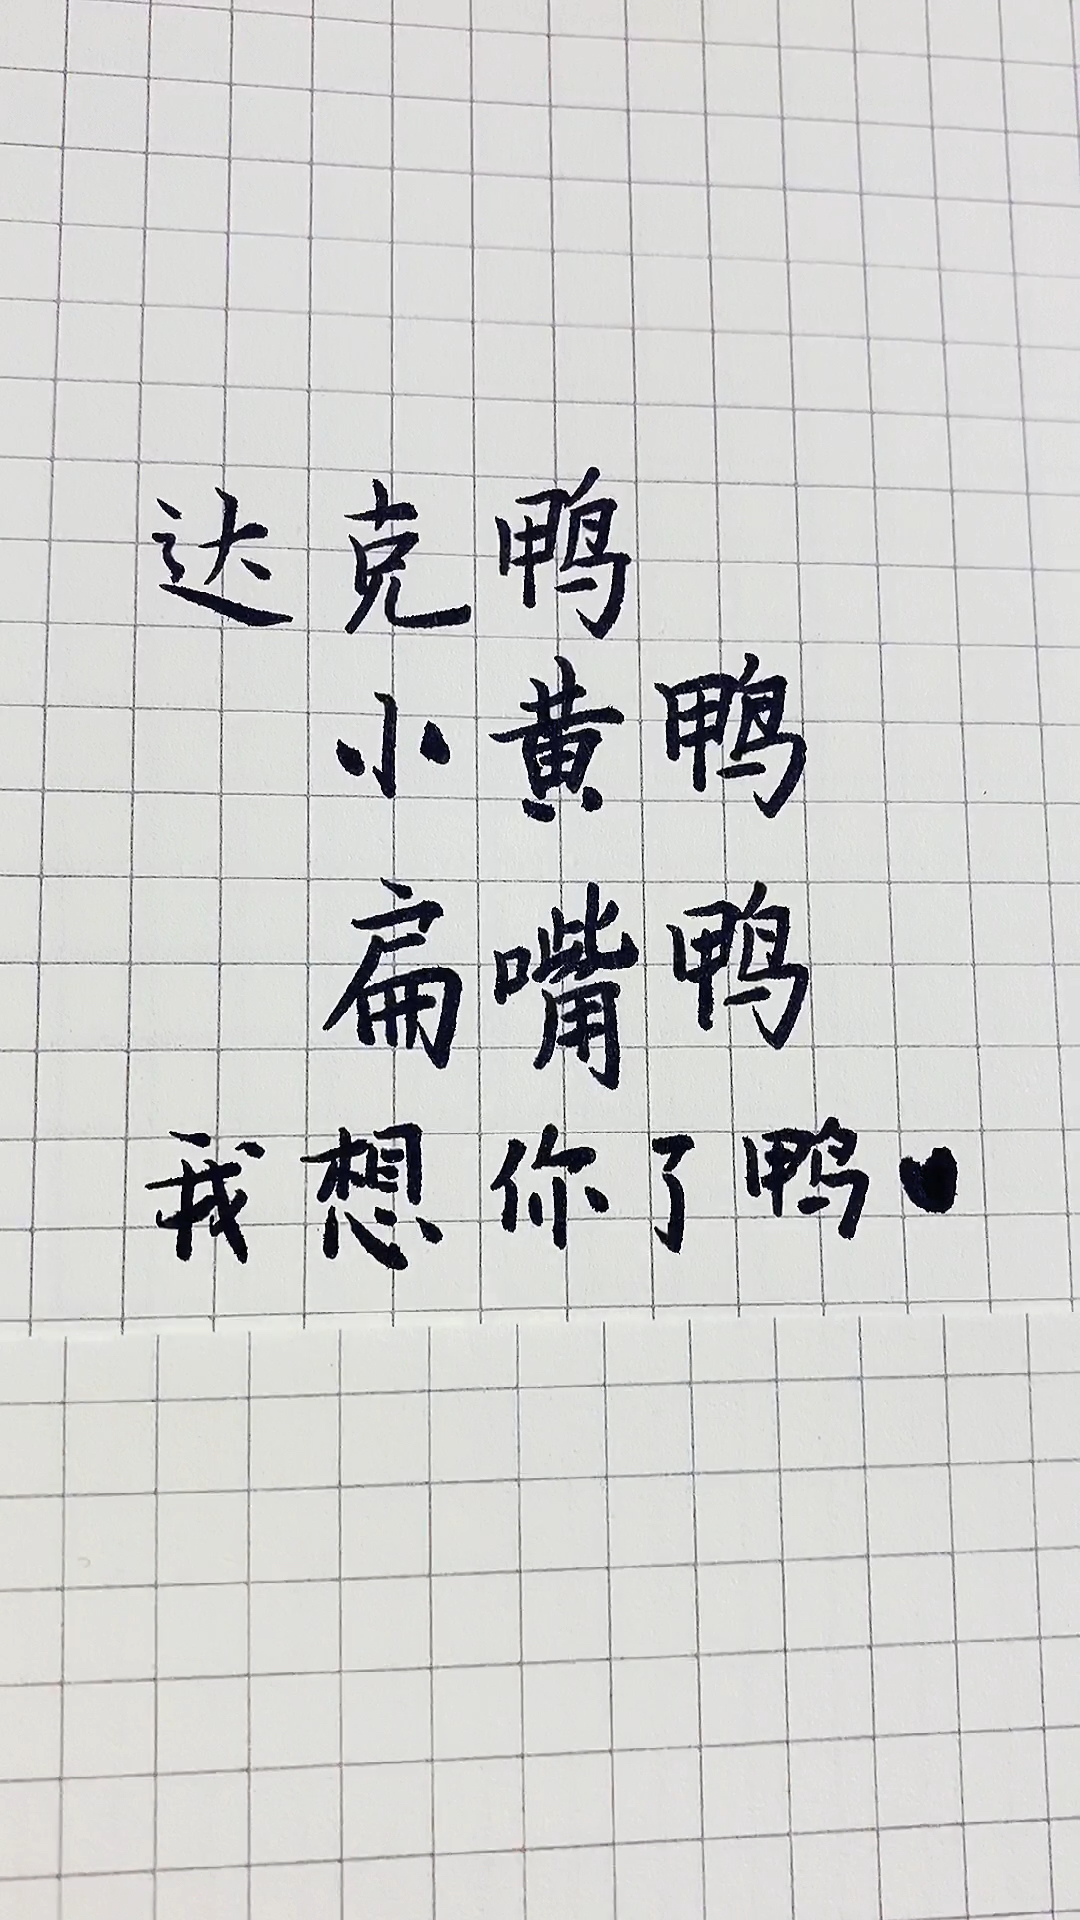 达克鸭
小黄鸭
扁嘴鸭
我想你了鸭♥